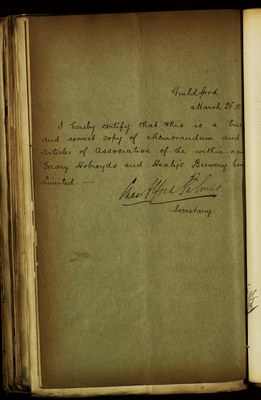 Guildford
March 28
I hereby certify that this is a true
and correct copy of Memorandum and
Articles of Association of the within
Friary Holroyds and Healy's Brewery
Limited —
Secretary